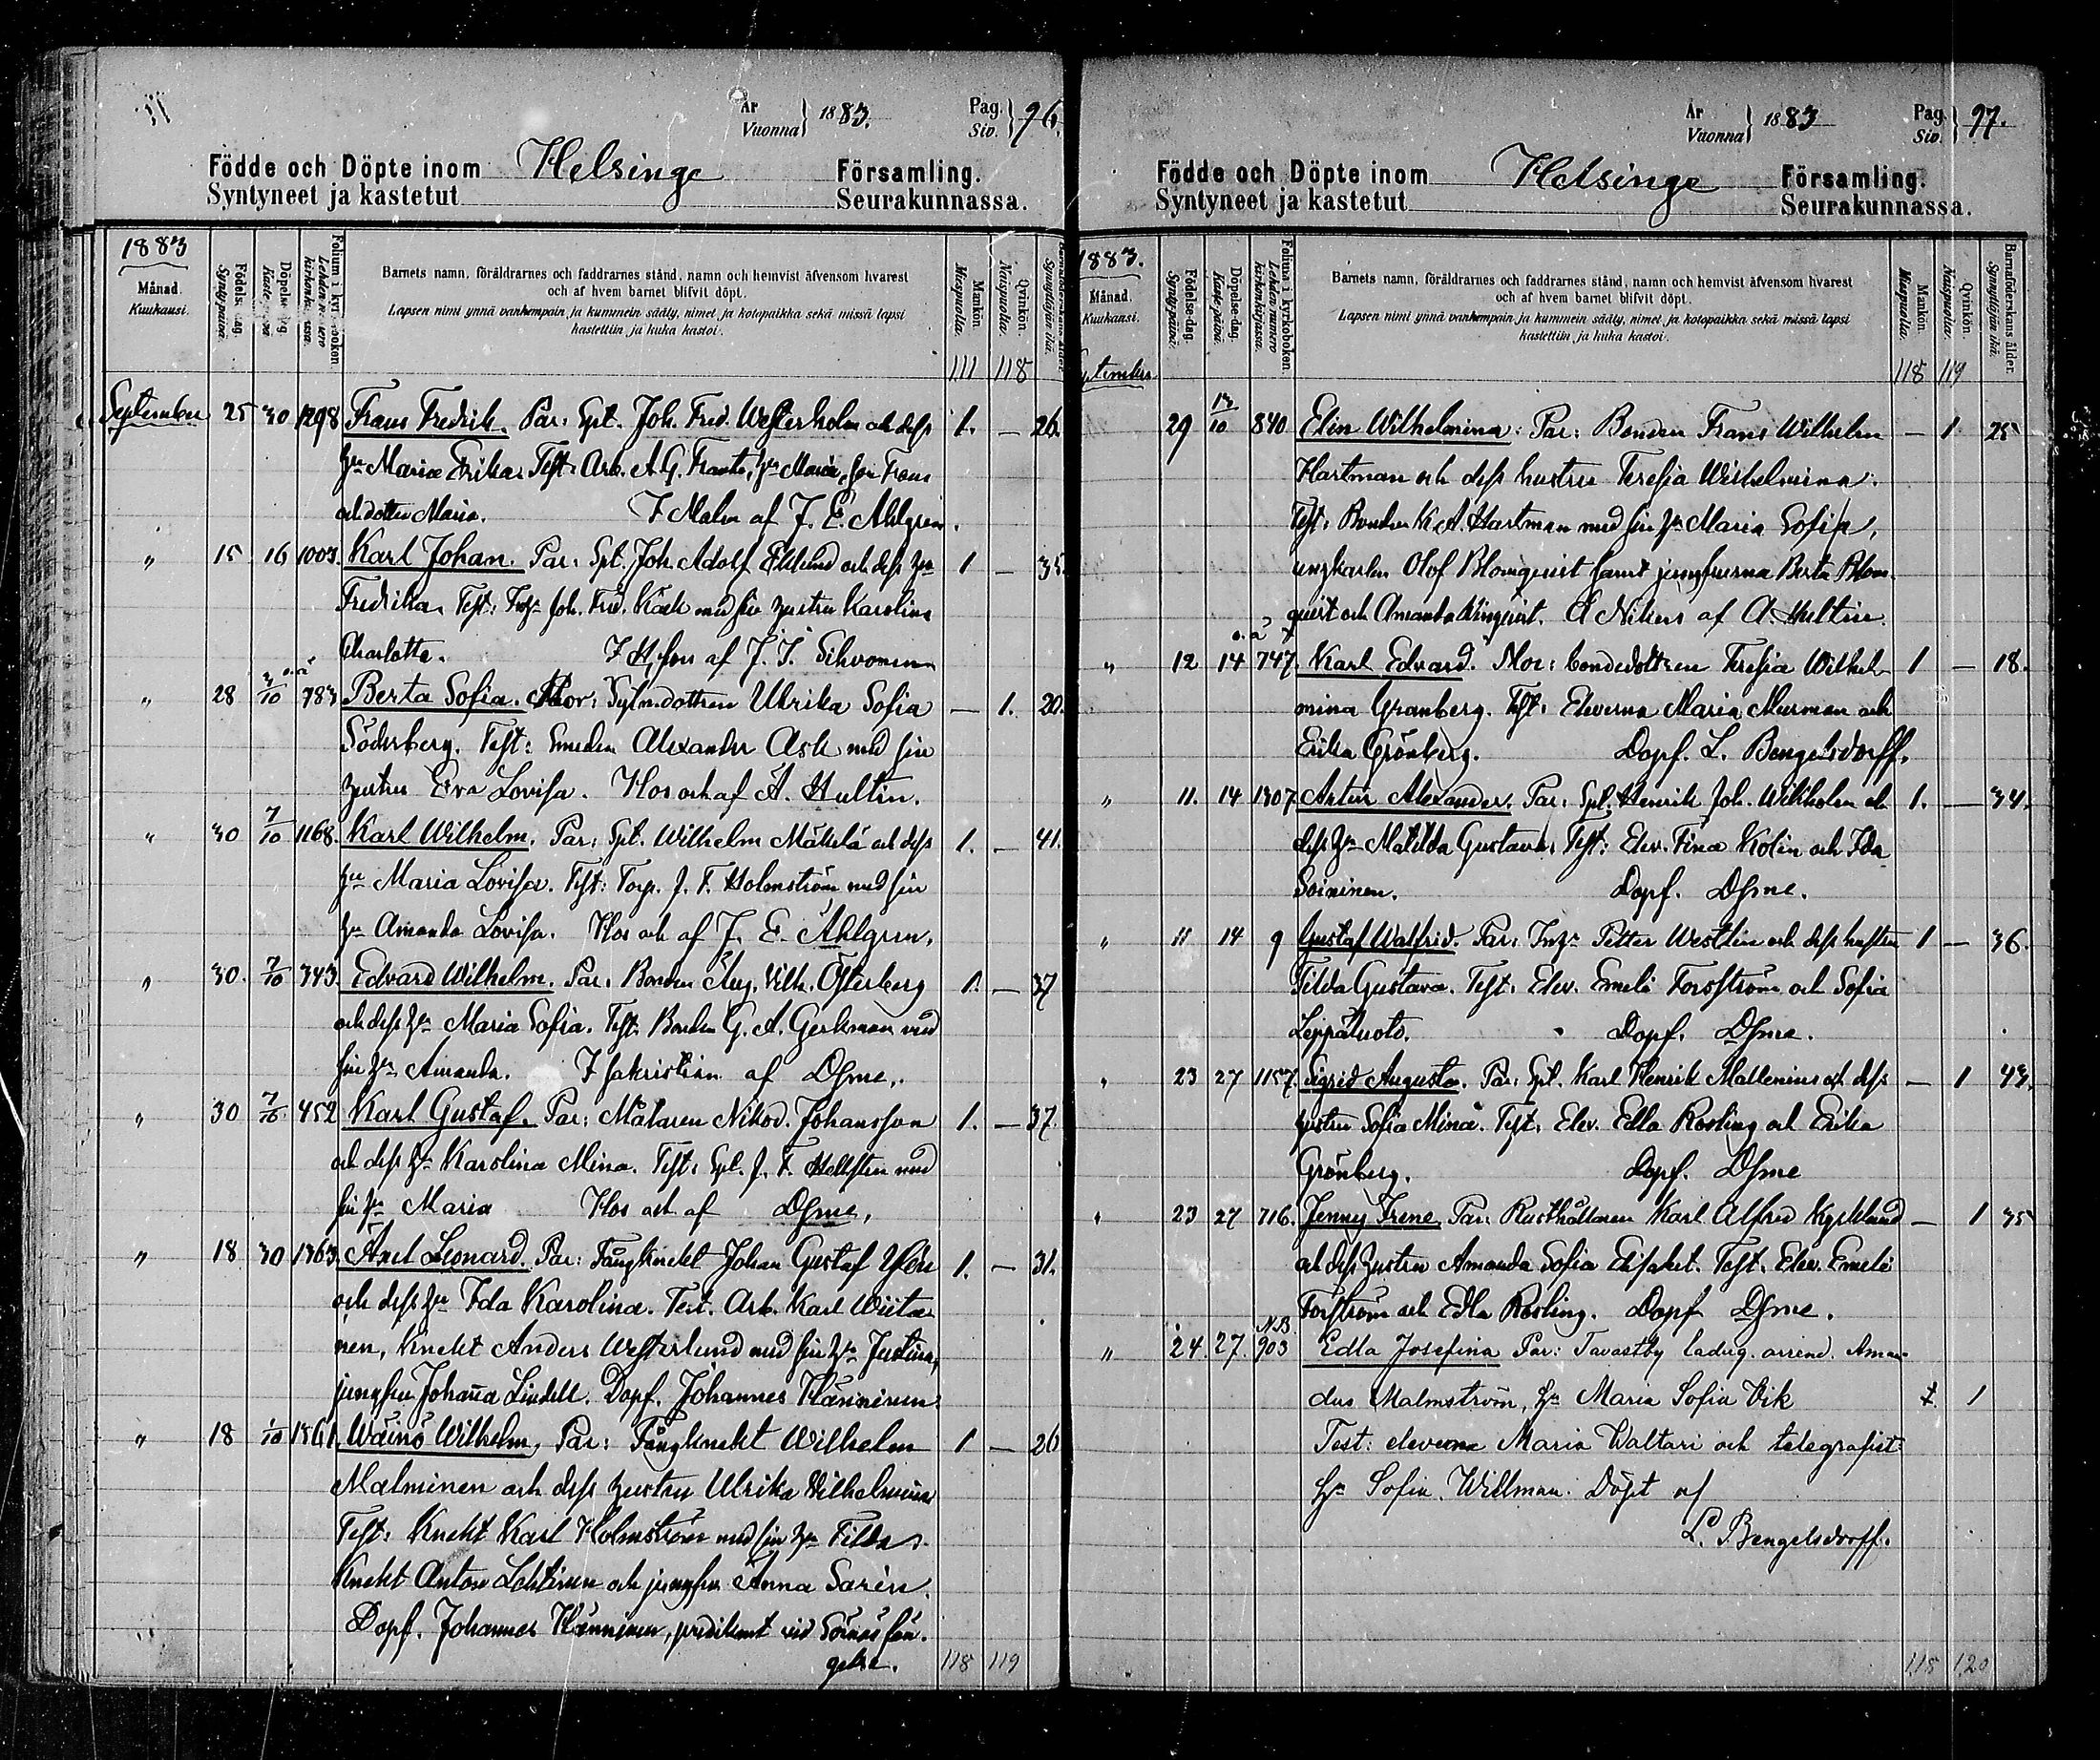 År
Vuonna } 1883. Pag.
Siv. } 96.
Födde och Döpte inom Helsinge Församling.
Syntyneet ja kastetut Seurakunnassa.
1883
Månad.
Kuukausi.
Födelse-dag.
Syntypäivä.
Döpelse-dag.
Kaste-päivä.
Folium i kyrkoboken.
Lehden numero
kirkonkirjassa.
Barnets namn, föräldrarnes och faddrarnes stånd, namn och hemvist äfvensom hvarest
och af hvem barnet blifvit döpt.
Lapsen nimi ynnä vanhempain ja kummein sääty, nimet ja kotopaikka sekä missä lapsi
kastettiin ja kuka kastoi.
Mankön.
Miespuolia.
Qvinkön.
Naispuolia.
Barnaföderskans ålder.
Synnyttäjän ikä.
111 118
September 25 30 1298 Frans Fredrik. Par: Spt. Joh. Fred. Westerholm och dess 1. — 26.
hu Maria Erika. Test: Arb. A. G. hu Maria, son Frans
och dotter Maria. I Malm af J. E. Ahlgren.
" 15 16 1003. Karl Johan. Par: Spt. Joh. Adolf Eklund och dess hu 1 — 35.
Fredrika. Test: Joh. Fred. med sin hustru Karolina
Charlotte. I af J. I. Sihvonen
" 28 3/10 o.ä. 783 Berta Sofia. Mor: Sytn.dottren Ulrika Sofia — 1. 20.
Söderberg. Test: Smeden Alexander Ask med sin
hustru Eva Lovisa. Hos och af A. Hultin.
" 30 7/10 1168. Karl Wilhelm. Par: Spt. Wilhelm Mäkelä och dess 1. — 41.
hu Maria Lovisa. Test: Torp. J. F. Holmström med sin
hu Amanda Lovisa. Hos och af J. E. Ahlgren.
" 30. 7/10 343. Edvard Wilhelm. Par: Bonden Aug. Vilh. Österberg 1. — 37
och dess hu Maria Sofia. Test: Bonden G. A. Gerkman med
sin hu Amanda. I sakristian af Dsme.
" 30 7/10 452 Karl Gustaf. Par: Målaren Nikod. Johansson 1. — 37.
och dess hu Karolina Mina. Test: Spt. J. F. Hellsten med
sin hu Maria Hos och af Dsme.
" 18 30 1363. Axel Leonard. Par: Fångknekt Johan Gustaf 1. — 31.
och dess hu Ida Karolina. Test. Arb. Karl Wiita-
nen, knekt Anders Westerlund med sin hu Justina,
jungfru Johanna Lindell. Döpf. Johannes Hänninen
" 18 1/10 1361. Wäinö Wilhelm. Par: Fångknekt Wilhelm 1 — 26
Malminen och dess hustru Ulrika Vilhelmina
Test: Knekt Karl Holmström med sin hu Tilda
Knekt Anton Lehtinen och jungfru Anna Sarin.
Döpf. Johannes Hänninen, predikant vid Sörnäs fän-
gelse. 118 119
År
Vuonna } 1883 Pag.
Siv. } 97.
Födde och Döpte inom Helsinge Församling.
Syntyneet ja kastetut Seurakunnassa.
1883.
Månad.
Kuukausi.
Födelse-dag.
Syntypäivä.
Döpelse-dag.
Kaste-päivä.
Folium i kyrkoboken.
Lehden numero
kirkonkirjassa.
Barnets namn, föräldrarnes och faddrarnes stånd, namn och hemvist äfvensom hvarest
och af hvem barnet blifvit döpt.
Lapsen nimi ynnä vanhempain ja kummein sääty, nimet ja kotopaikka sekä missä lapsi
kastettiin ja kuka kastoi.
Mankön.
Miespuolia.
Qvinkön.
Naispuolia.
Barnaföderskans ålder.
Synnyttäjän ikä.
September 118 119
29 13/10 840 Elin Wilhelmina: Par: Bonden Frans Wilhelm — 1 25
Hartman och dess hustru Teresia Wilhelmina.
Test: Bonden K. A. Hartman med sin hu Maria Sofia,
ungkarlen Olof Blomqvist samt jungfrurna Berta Blom-
qvist och Amanda Vingqvist. Å Nikus af A. Hultin.
" 12 14 o.ä. 747. Karl Edvard. Mor: bondedottren Teresia Wilhel- 1 — 18.
mina Granberg. Test: Eleverna Maria Murman och
Erika Grönberg. Döpf. L. Bengelsdorff.
" 11. 14 1307. Artur Alexander. Par: Spt. Henrik Joh. Wikholm och 1. — 34.
dess hu Matilda Gustava. Test: Elev. Fina Kolin och Ida
Soininen. Döpf. Dsme.
" 11 14 9 Gustaf Walfrid. Par: Petter Westlin och dess hustru 1 — 36.
Tilda Gustava. Test: Elev. Emelie Forsström och Sofia
Leppäluoto. Döpf. Dsme.
" 23 27 1157. Sigrid Augusta. Par: Spt. Karl Henrik Mallenius och dess — 1 43.
hustru Sofia Mina. Test: Elev. Edla Rosling och Erika
Grönberg. Döpf. Dsme
" 23 27 716. Jenny Irene. Par: Rusthållaren Karl Alfred Kyrklund — 1 35
och dess hustru Amanda Sofia Elisabet. Test: Elev. Emelie
Forsström och Edla Rosling. Döpf Dsme.
" 24. 27. NB 903 Edla Josefina Par: Tavastby ladug. arrend. Aman-
dus Malmström, hu Maria Sofia Vik 1
Test: eleverna Maria Waltari och telegrafist
hu Sofia Willman. Döpt af
L. Bengelsdorff.
118 120